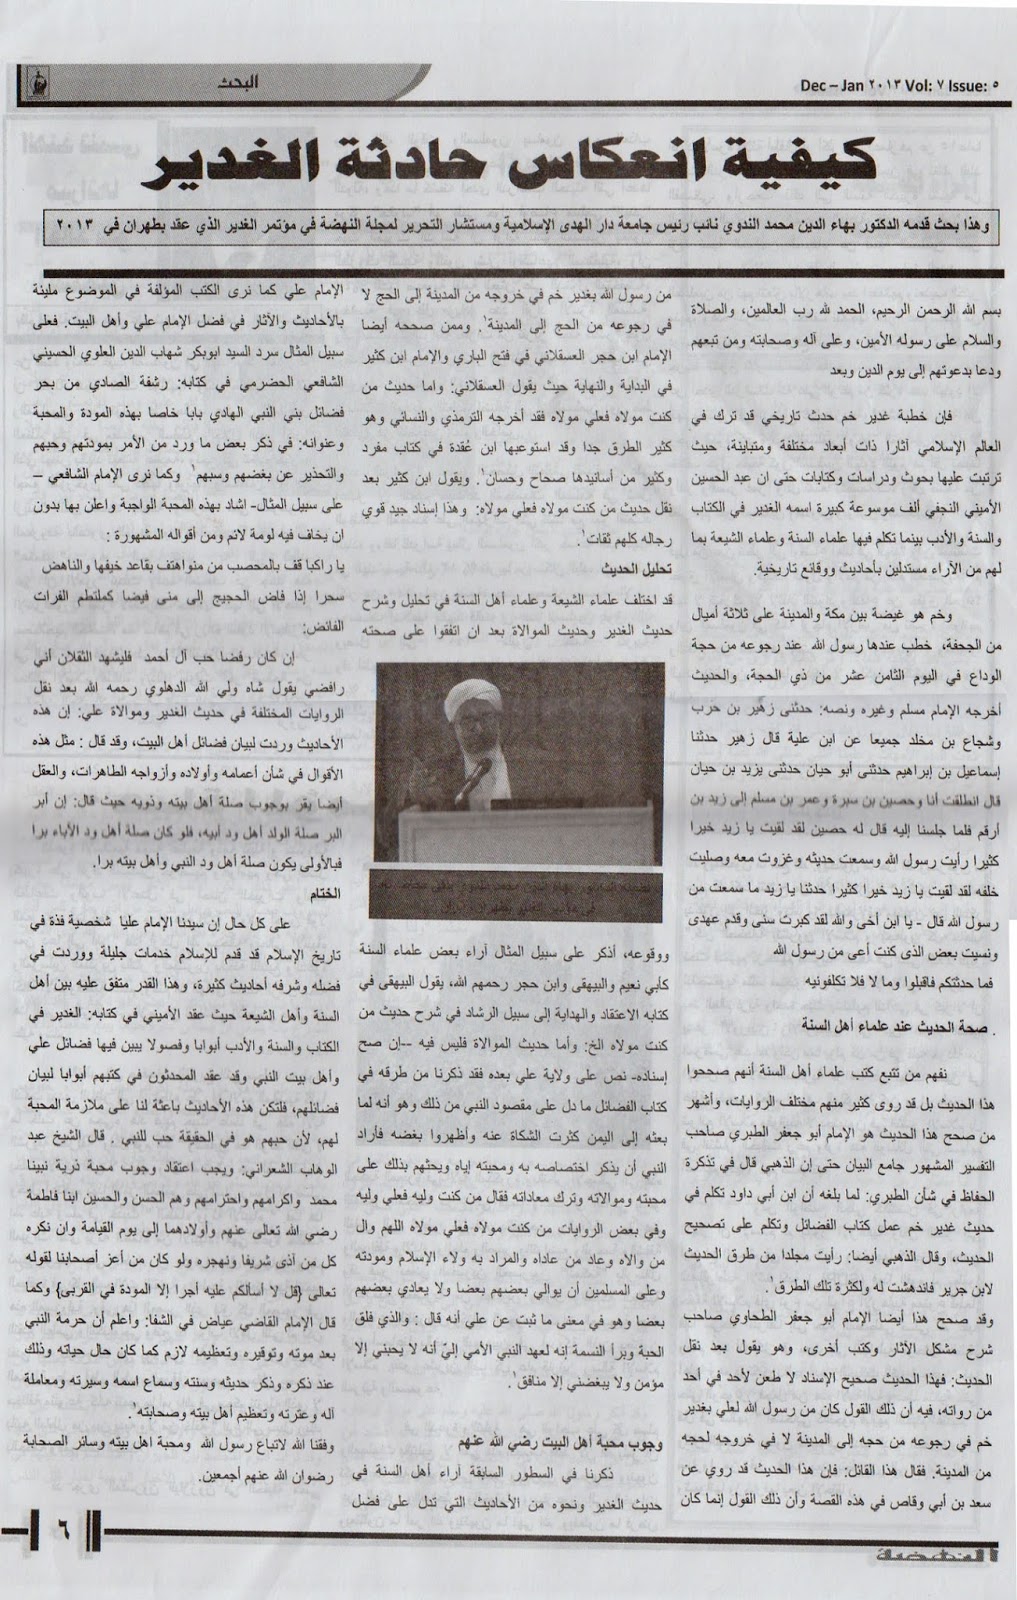 البحث
Dec – Jan ٢٠١٣ Vol: ٧ Issue: ٥
كيفية انعكاس حادثة الغدير
وهذا بحث قدمه الدكتور بهاء الدين محمد الندوي نائب رئيس جامعة دار الهدى الإسلامية ومستشار التحرير لمجلة النهضة في مؤتمر الغدير الذي عقد بطهران في ٢٠١٣
بسم الله الرحمن الرحيم، الحمد لله رب العالمين، والصلاة
والسلام على رسوله الأمين، وعلى آله وصحابته ومن تبعهم
ودعا بدعوتهم إلى يوم الدين وبعد
فإن خطبة غدير خم حدث تاريخي قد ترك في
العالم الإسلامي آثارا ذات أبعاد مختلفة ومتباينة، حيث
ترتبت عليها بحوث ودراسات وكتابات حتى ان عبد الحسين
الأميني النجفي ألف موسوعة كبيرة اسمه الغدير في الكتاب
والسنة والأدب بينما تكلم فيها علماء السنة وعلماء الشيعة بما
لهم من الآراء مستدلين بأحاديث ووقائع تاريخية.
وخم هو غيضة بين مكة والمدينة على ثلاثة أميال
من الجحفة، خطب عندها رسول الله عند رجوعه من حجة
الوداع في اليوم الثامن عشر من ذي الحجة، والحديث
أخرجه الإمام مسلم وغيره ونصه: حدثنى زهير بن حرب
وشجاع بن مخلد جميعا عن ابن علية قال زهير حدثنا
إسماعيل بن إبراهيم حدثنى أبو حيان حدثنى يزيد بن حيان
قال انطلقت أنا وحصين بن سبرة وعمر بن مسلم إلى زيد بن
أرقم فلما جلسنا إليه قال له حصين لقد لقيت يا زيد خيرا
كثيرا رأيت رسول الله وسمعت حديثه وغزوت معه وصليت
خلفه لقد لقيت يا زيد خيرا كثيرا حدثنا يا زيد ما سمعت من
رسول الله قال - يا ابن أخى والله لقد كبرت سنى وقدم عهدى
ونسيت بعض الذى كنت أعى من رسول الله
فما حدثتكم فاقبلوا وما لا فلا تكلفونيه
. صحة الحديث عند علماء أهل السنة
نفهم من تتبع كتب علماء أهل السنة أنهم صححوا
هذا الحديث بل قد روى كثير منهم مختلف الروايات، وأشهر
من صحح هذا الحديث هو الإمام أبو جعفر الطبري صاحب
التفسير المشهور جامع البيان حتى إن الذهبي قال في تذكرة
الحفاظ في شأن الطبري: لما بلغه أن ابن أبي داود تكلم في
حديث غدير خم عمل كتاب الفضائل وتكلم على تصحيح
الحديث، وقال الذهبي أيضا: رأيت مجلدا من طرق الحديث
لابن جرير فاندهشت له ولكثرة تلك الطرق١.
وقد صحح هذا أيضا الإمام أبو جعفر الطحاوي صاحب
شرح مشكل الآثار وكتب أخرى، وهو يقول بعد نقل
الحديث: فهذا الحديث صحيح الإسناد لا طعن لأحد في أحد
من رواته، فيه أن ذلك القول كان من رسول الله لعلي بغدير
خم في رجوعه من حجه إلى المدينة لا في خروجه لحجه
من المدينة. فقال هذا القائل: فإن هذا الحديث قد روي عن
سعد بن أبي وقاص في هذه القصة وأن ذلك القول إنما كان
من رسول الله بغدير خم في خروجه من المدينة إلى الحج لا
في رجوعه من الحج إلى المدينة١. وممن صححه أيضا
الإمام ابن حجر العسقلاني في فتح الباري والإمام ابن كثير
في البداية والنهاية حيث يقول العسقلاني: واما حديث من
كنت مولاه فعلي مولاه فقد أخرجه الترمذي والنسائي وهو
كثير الطرق جدا وقد استوعبها ابن عُقدة في كتاب مفرد
وكثير من أسانيدها صحاح وحسان١. ويقول ابن كثير بعد
نقل حديث من كنت مولاه فعلي مولاه: وهذا إسناد جيد قوي
رجاله كلهم ثقات١.
تحليل الحديث
قد اختلف علماء الشيعة وعلماء أهل السنة في تحليل وشرح
حديث الغدير وحديث الموالاة بعد ان اتفقوا على صحته
ووقوعه، أذكر على سبيل المثال آراء بعض علماء السنة
كأبي نعيم والبيهقي وابن حجر رحمهم الله، يقول البيهقي في
كتابه الاعتقاد والهداية إلى سبيل الرشاد في شرح حديث من
كنت مولاه الخ: وأما حديث الموالاة فليس فيه –-إن صح
إسناده- نص على ولاية علي بعده فقد ذكرنا من طرقه في
كتاب الفضائل ما دل على مقصود النبي من ذلك وهو أنه لما
بعثه إلى اليمن كثرت الشكاة عنه وأظهروا بغضه فأراد
النبي أن يذكر اختصاصه به ومحبته إياه ويحثهم بذلك على
محبته وموالاته وترك معاداته فقال من كنت وليه فعلي وليه
وفي بعض الروايات من كنت مولاه فعلي مولاه اللهم وال
من والاه وعاد من عاداه والمراد به ولاء الإسلام ومودته
وعلى المسلمين أن يوالي بعضهم بعضا ولا يعادي بعضهم
بعضا وهو في معنى ما ثبت عن علي أنه قال : والذي فلق
الحبة وبرأ النسمة إنه لعهد النبي الأمي إليّ أنه لا يحبني إلا
مؤمن ولا يبغضني إلا منافق١.
وجوب محبة أهل البيت رضي الله عنهم
ذكرنا في السطور السابقة آراء أهل السنة في
حديث الغدير ونحوه من الأحاديث التي تدل على فضل
الإمام علي كما نرى الكتب المؤلفة في الموضوع مليئة
بالأحاديث والآثار في فضل الإمام علي وأهل البيت. فعلى
سبيل المثال سرد السيد ابوبكر شهاب الدين العلوي الحسيني
الشافعي الحضرمي في كتابه: رشفة الصادي من بحر
فضائل بني النبي الهادي بابا خاصا بهذه المودة والمحبة
وعنوانه: في ذكر بعض ما ورد من الأمر بمودتهم وحبهم
والتحذير عن بغضهم وسبهم١ وكما نرى الإمام الشافعي –
على سبيل المثال- اشاد بهذه المحبة الواجبة واعلن بها بدون
ان يخاف فيه لومة لائم ومن أقواله المشهورة :
يا راكبا قف بالمحصب من منى واهتف بقاعد خيفها والناهض
سحرا إذا فاض الحجيج إلى منى فيضا كملتطم الفرات
الفائض:
إن كان رفضا حب آل أحمد فليشهد الثقلان أني
رافضي يقول شاه ولي الله الدهلوي رحمه الله بعد نقل
الروايات المختلفة في حديث الغدير وموالاة علي: إن هذه
الأحاديث وردت لبيان فضائل أهل البيت، وقد قال : مثل هذه
الأقوال في شأن أعمامه وأولاده وأزواجه الطاهرات، والعقل
أيضا يقر بوجوب صلة أهل بيته وذويه حيث قال: إن أبر
البر صلة الولد أهل ود أبيه، فلو كان صلة أهل ود الأباء برا
فبالأولى يكون صلة أهل ود النبي وأهل بيته برا.
الختام
على كل حال إن سيدنا الإمام عليا شخصية فذة في
تاريخ الإسلام قد قدم للإسلام خدمات جليلة ووردت في
فضله وشرفه أحاديث كثيرة، وهذا القدر متفق عليه بين أهل
السنة وأهل الشيعة حيث عقد الأميني في كتابه: الغدير في
الكتاب والسنة والأدب أبوابا وفصولا يبين فيها فضائل علي
وأهل بيت النبي وقد عقد المحدثون في كتبهم أبوابا لبيان
فضائلهم، فلتكن هذه الأحاديث باعثة لنا على ملازمة المحبة
لهم، لأن حبهم هو في الحقيقة حب للنبي . قال الشيخ عبد
الوهاب الشعراني: ويجب اعتقاد وجوب محبة ذرية نبينا
محمد واكرامهم واحترامهم وهم الحسن والحسين ابنا فاطمة
رضي الله تعالى عنهم وأولادهما إلى يوم القيامة وان نكره
كل من أذى شريفا ونهجره ولو كان من أعز أصحابنا لقوله
تعالى {قل لا أسألكم عليه أجرا إلا المودة في القربى} وكما
قال الإمام القاضي عياض في الشفا: واعلم أن حرمة النبي
بعد موته وتوقيره وتعظيمه لازم كما كان حال حياته وذلك
عند ذكره وذكر حديثه وسنته وسماع اسمه وسيرته ومعاملة
آله وعترته وتعظيم أهل بيته وصحابته١.
وفقنا الله لاتباع رسول الله ومحبة اهل بيته وسائر الصحابة
رضوان الله عنهم أجمعين.
٦
النهضة